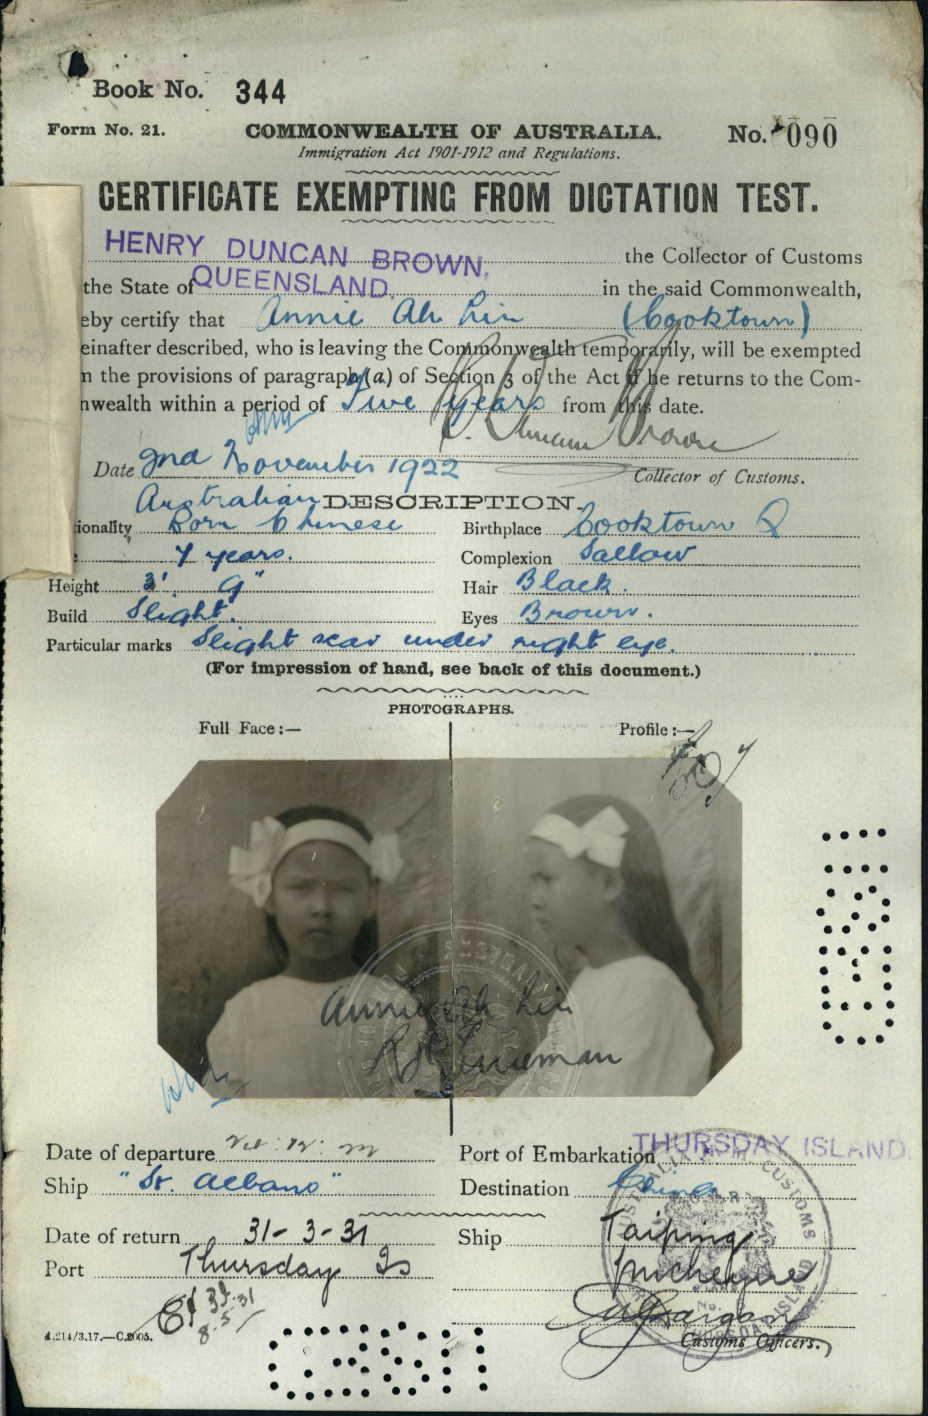 Book No. 344
Form No. 21. COMMONWEALTH OF AUSTRALIA. No. 090
Immigration Act 1901-1912 and Regulations.
CERTIFICATE EXEMPTING FROM DICTATION TEST.
HENRY DUNCAN BROWN, the Collector of Customs
the State of QUEENSLAND. in the said Commonwealth,
eby certify that Annie Ah Lin (Cooktown)
einafter described, who is leaving the Commonwealth temporarily, will be exempted
n the provisions of paragraph (a) of Section 3 of the Act if he returns to the Com-
nwealth within a period of Five years from this date.
H. Duncan Brown
Date 2nd November 1922 Collector of Customs.
DESCRIPTION.
ionality Australian Born Chinese Birthplace Cooktown Q
7 years. Complexion Sallow
Height 3' 9" Hair Black.
Build Slight. Eyes Brown.
Particular marks Slight scar under right eye.
(For impression of hand, see back of this document.)
PHOTOGRAPHS.
Full Face:— Profile:—
Annie Ah Lin
Date of departure Port of Embarkation THURSDAY ISLAND.
Ship "St. Albans" Destination China
Date of return 31-3-31 Ship Taiping
Port Thursday Is
8.5.31
4.214/3.17.—C.2005. Customs Officers.